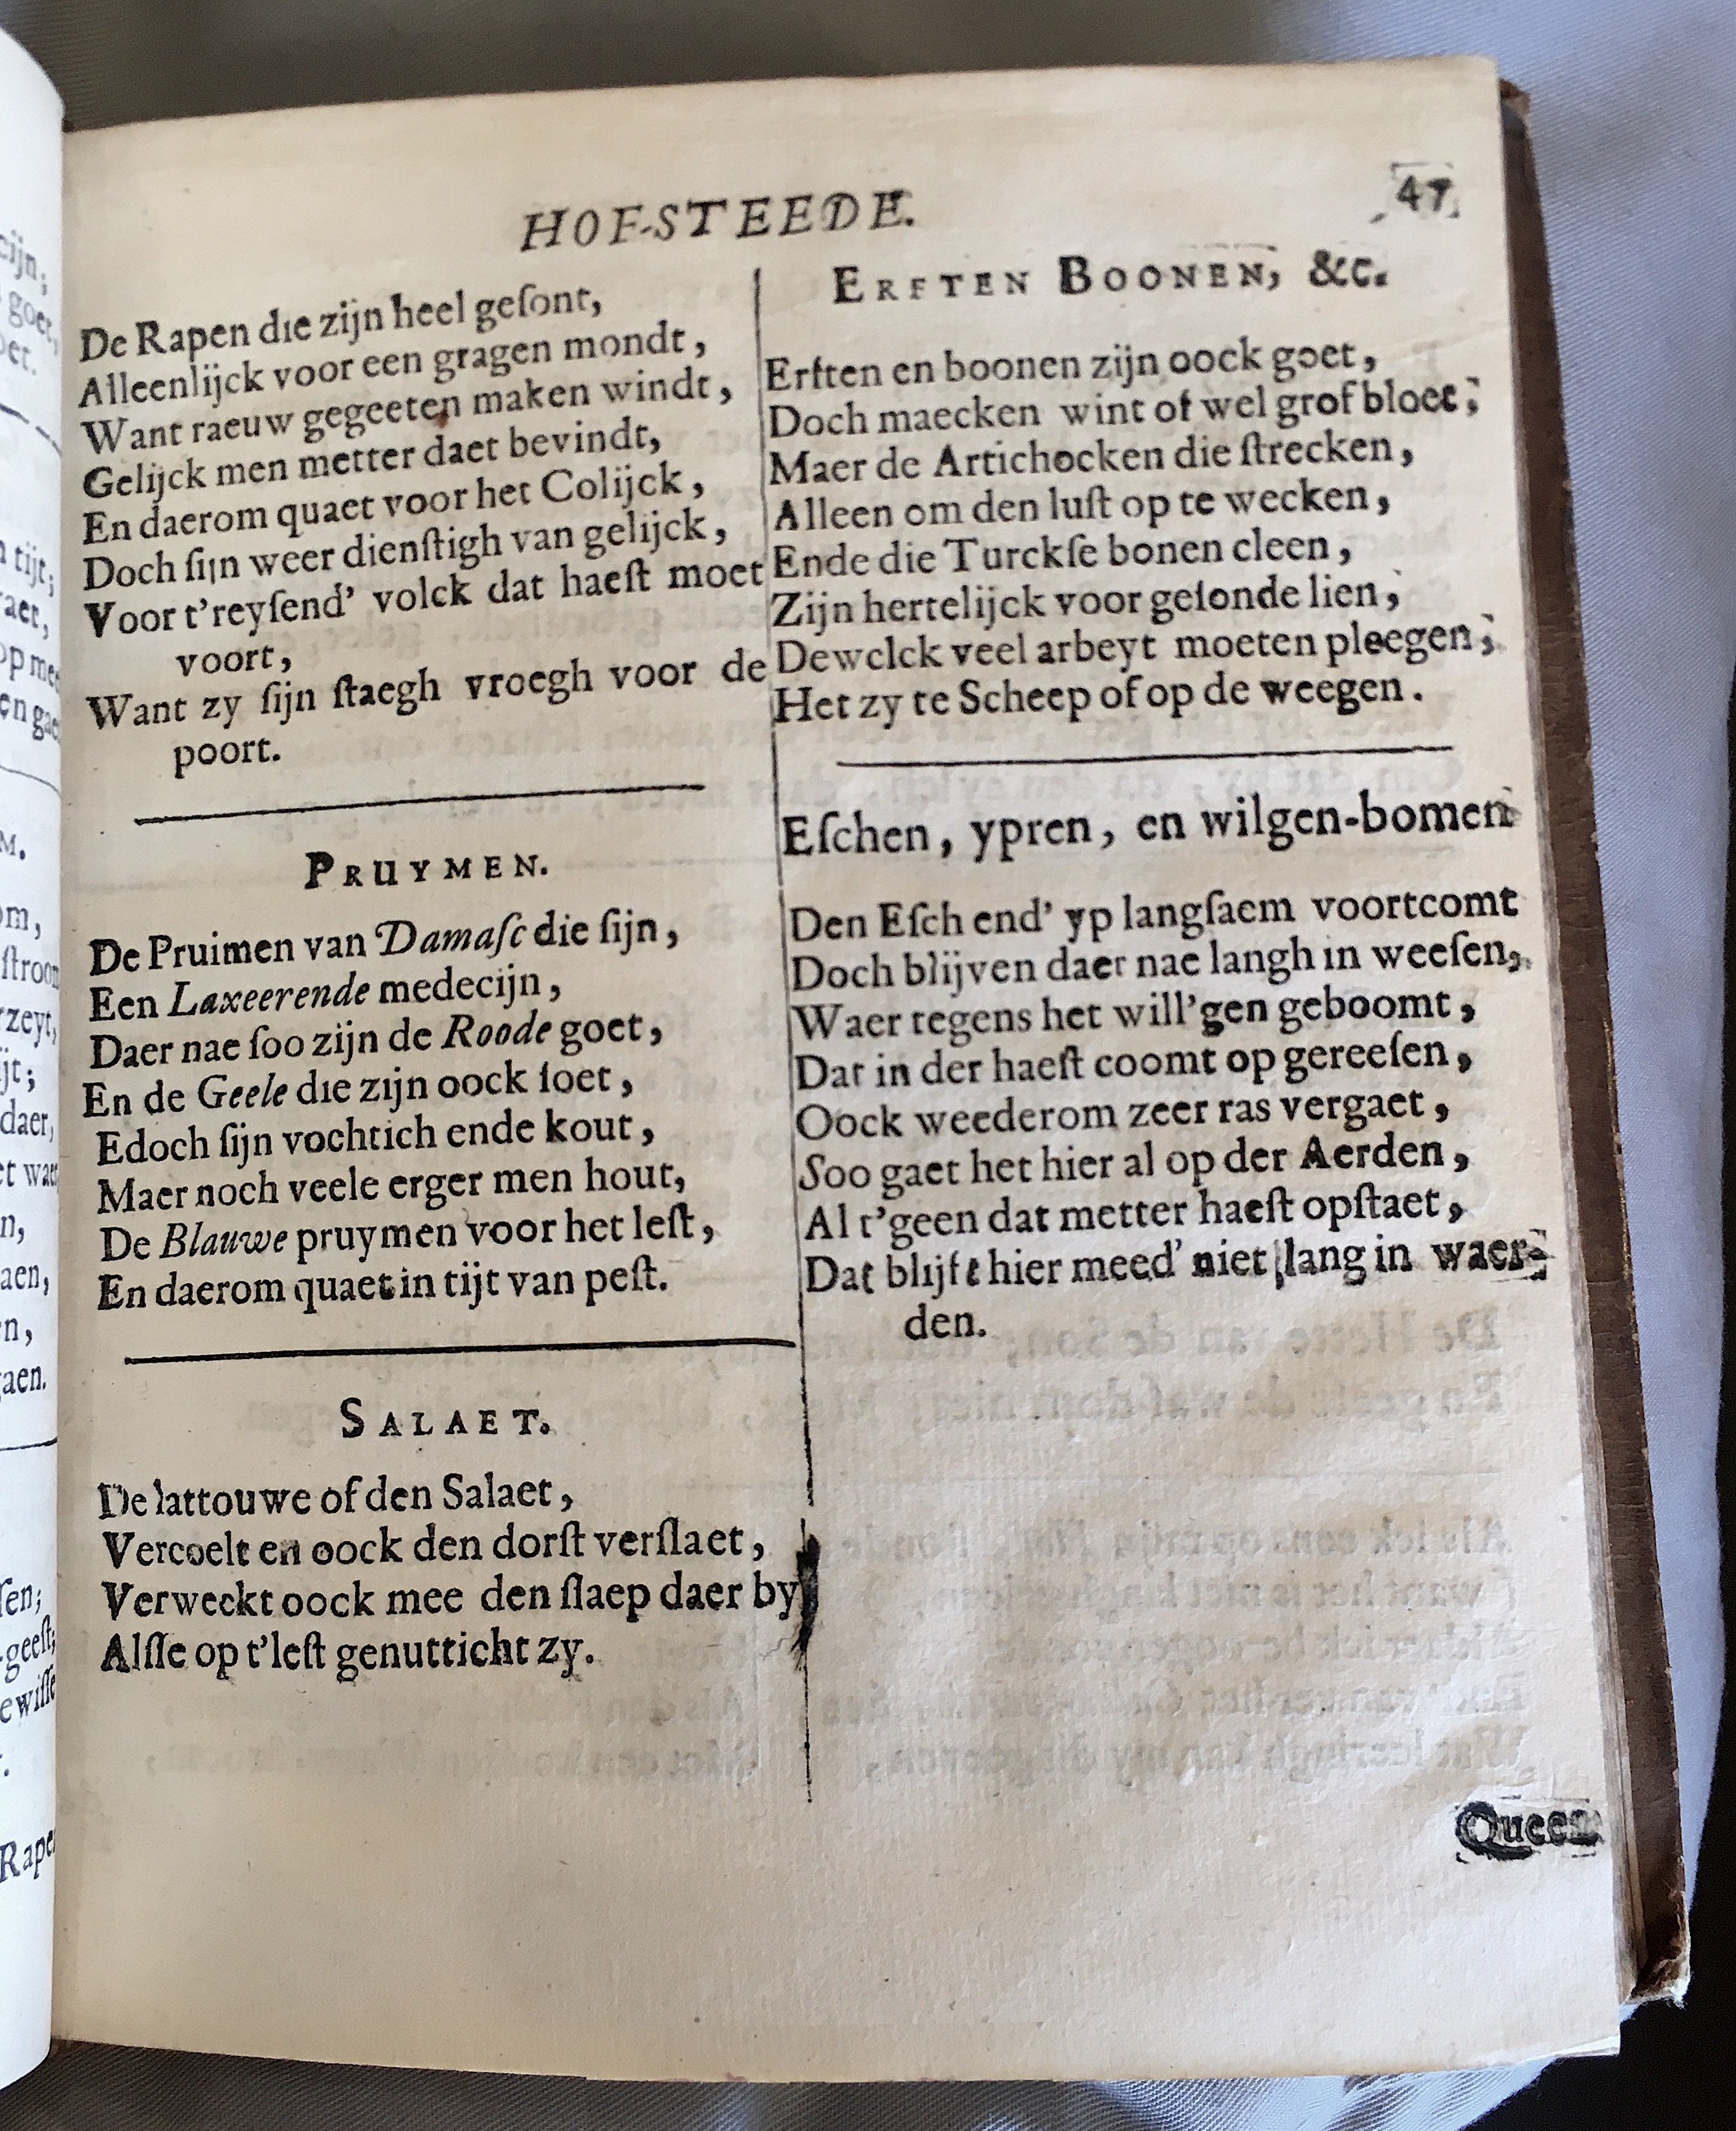 HOF-STEEDE.
47
De Rapen die zijn heel geſont,
Alleenlijck voor een gragen mondt,
Want raeuw gegeeten maken windt,
Gelijck men metter daet bevindt,
En daerom quaet voor het Colijck,
Doch ſijn weer dienſtigh van gelijck,
Voor t'reyſend' volck dat haeſt moet
voort,
Want zy ſijn ſtaegh vroegh voor de
poort.
PRUYMEN.
De Pruimen van Damaſc die ſijn,
Een Laxeerende medecijn,
Daer nae ſoo zijn de Roode goet,
En de Geele die zijn oock ſoet,
Edoch ſijn vochtich ende kout,
Maer noch veele erger men hout,
De Blauwe pruymen voor het leſt,
En daerom quaet in tijt van peſt.
SALAET.
De lattouwe of den Salaet,
Vercoelt en oock den dorſt verſlaet,
Verweckt oock mee den ſlaep daer by
Alſſe op t'leſt genutticht zy.
ERFTEN BOONEN, &c.
Erften en boonen zijn oock goet,
Doch maecken wint of wel grof bloet;
Maer de Artichocken die ſtrecken,
Alleen om den luſt op te wecken,
Ende die Turckſe bonen cleen,
Zijn hertelijck voor geſonde lien,
Dewelck veel arbeyt moeten pleegen;
Het zy te Scheep of op de weegen.
Eſchen, ypren, en wilgen-bomen
Den Eſch end' yp langſaem voortcomt
Doch blijven daer nae langh in weeſen,
Waer tegens het will'gen geboomt,
Dat in der haeſt coomt op gereeſen,
Oock weederom zeer ras vergaet,
Soo gaet het hier al op der Aerden,
Al t'geen dat metter haeſt opſtaet,
Dat blijft hier meed' niet lang in waer-
den.
Queen